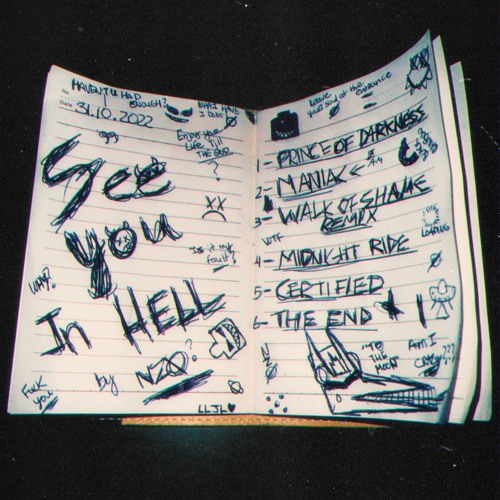 HAVENT U HAD
ENOUGH?
No.
Date 31.10.2022
WHAT HAVE
I DONE
Enjoy Your
Life Till
THE END
?
See
you
In HELL
Is it my
fault?
by NZO?
Fuck
you
LLJL
Leave
your soul at the
entrance
1- PRINCE OF DARKNESS
2- MANIAC
3- WALK OF SHAME
REMIX
WTF
4- MIDNIGHT RIDE
LOADING
5- CERTIFIED
6- THE END
"TO
THE
MOON"
Am I
CRAZY???